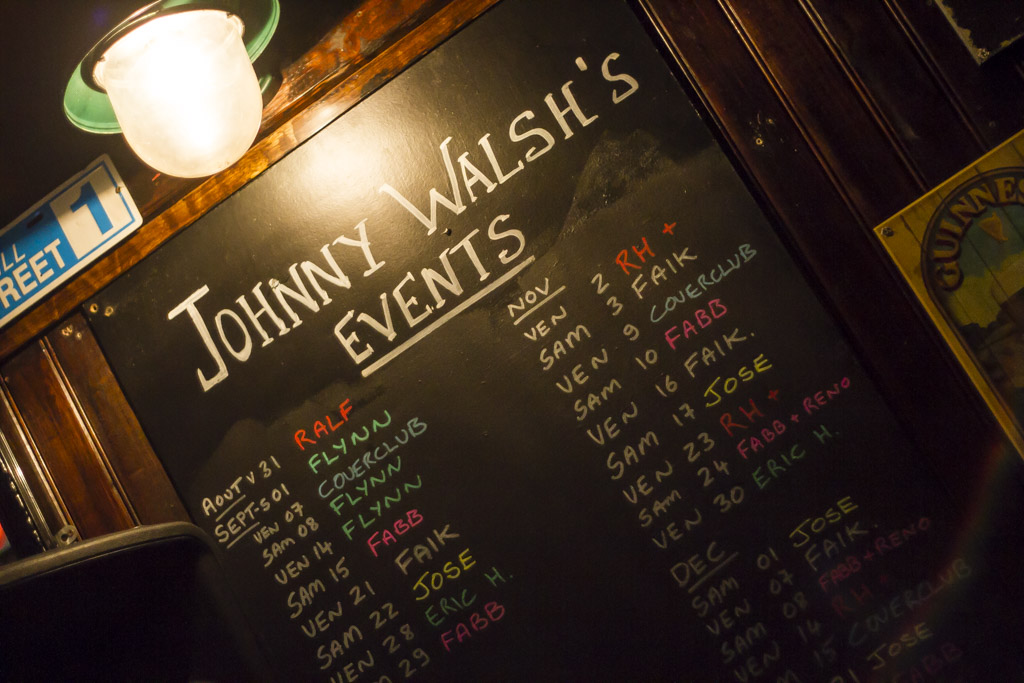 JOHNNY WALSH'S
EVENTS
AOUT V 31 RALF
SEPT-S 01 FLYNN
VEN 07 COVERCLUB
SAM 08 FLYNN
VEN 14 FLYNN
SAM 15 FABB
VEN 21 FAIK
SAM 22 JOSE
VEN 28 ERIC H.
29 FABB
NOV
VEN 2 RH +
SAM 3 FAIK
VEN 9 COVERCLUB
SAM 10 FABB
VEN 16 FAIK.
SAM 17 JOSE
VEN 23 RH +
SAM 24 FABB + RENO
VEN 30 ERIC H.
DEC
SAM 01 JOSE
VEN 07 FAIK.
SAM 08 FABB + RENO
VEN 14 RH +
15 COVERCLUB
JOSE
FABB
LL 1
REET
GUINNES